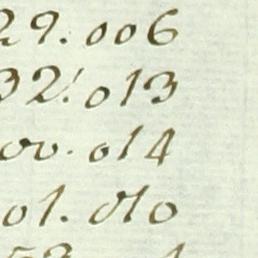 29. 006
32. 013
00. 014
01. 010